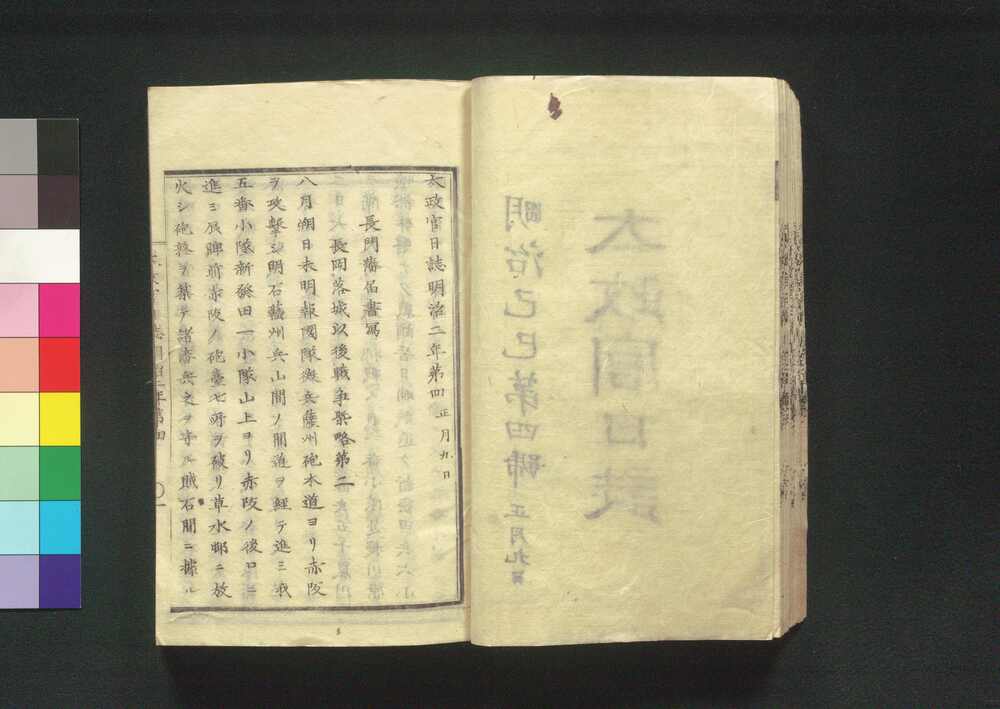 太政官日誌
明治己巳第四號 正月九日
太政官日誌明治二年第四 正月九日
長門藩届書寫
長岡落城以後戦争畧略第二
八月朔日未明報國隊徴兵薩州砲本道ヨリ赤阪
ヲ攻撃シ明石藝州兵山間ノ間道ヲ經テ進ミ我
五番小隊新發田一小隊山上ヨリ赤阪ノ後ロニ
進ミ辰牌前赤阪ノ砲臺七所ヲ破リ草水邨ニ放
火シ砲弊ヲ築テ諸藩兵之ヲ守ル賊石間ニ據ル